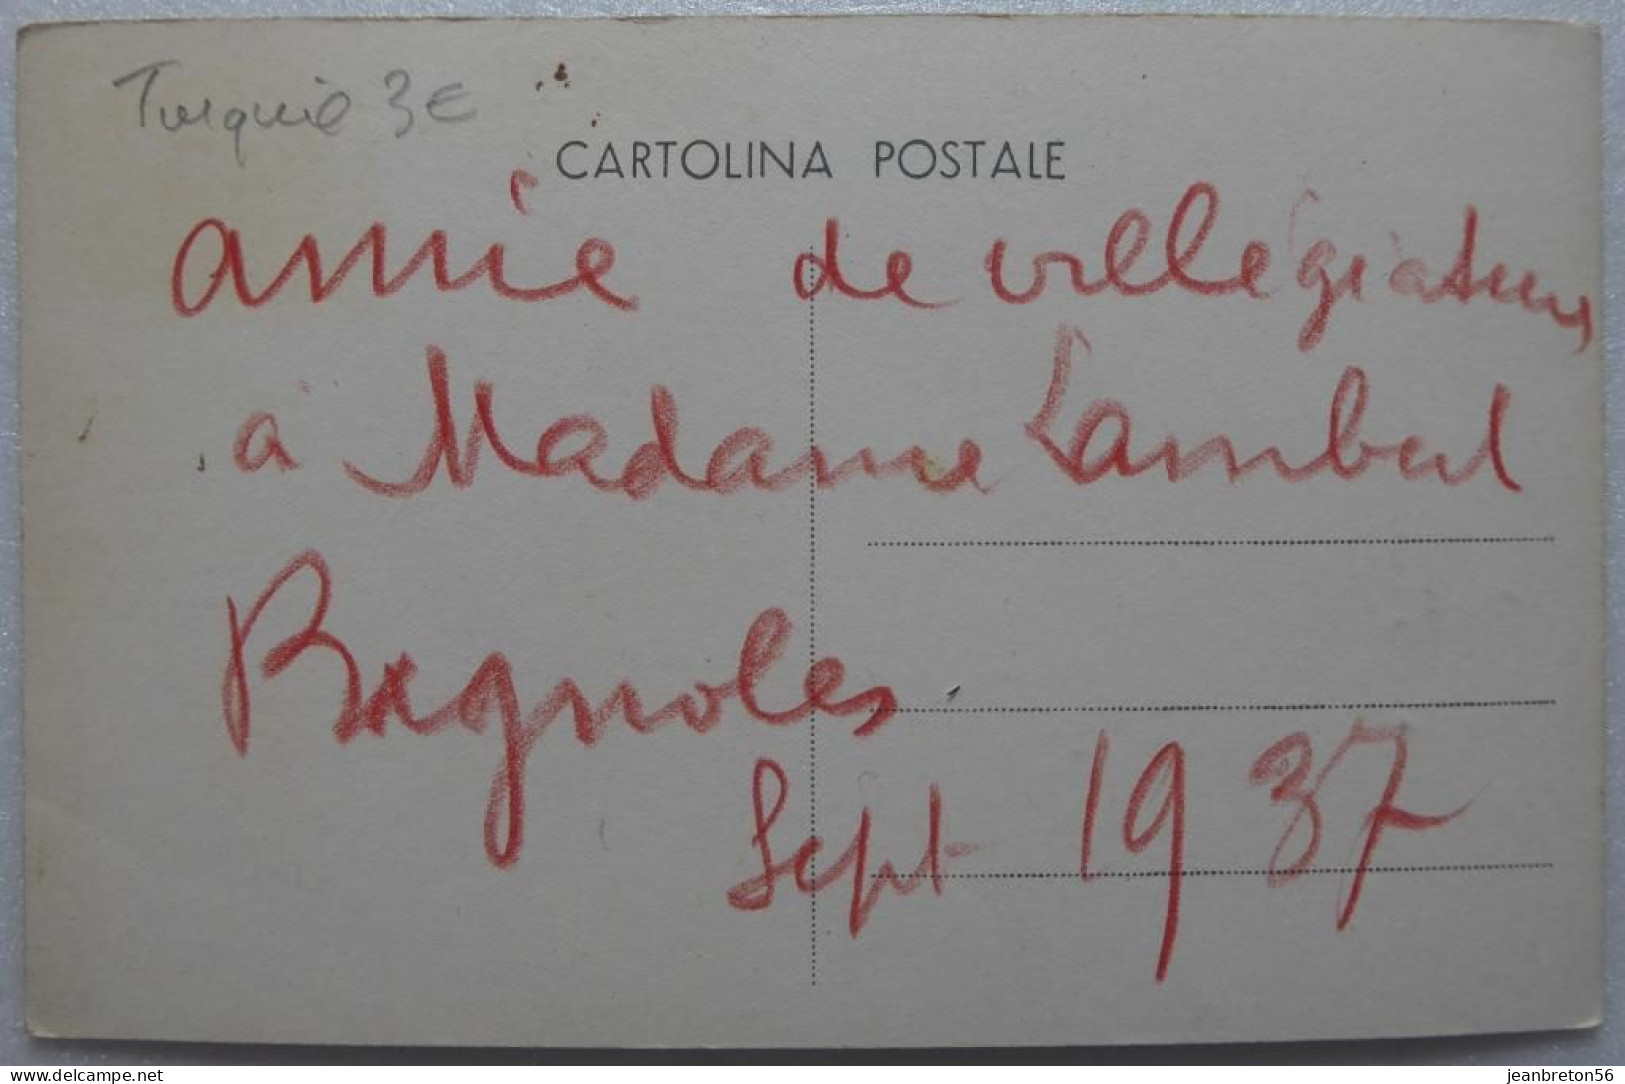 Turquie 3€
CARTOLINA POSTALE
amie de villégiature
à Madame Lambert
Bagnoles
Sept 1937
delcampe.net
jeanbreton56